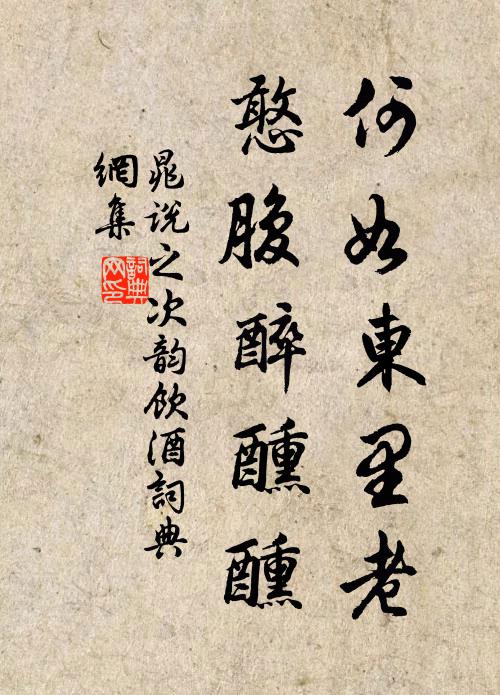 何如東里老
憨腹醉醺醺
晁說之次韵飲酒詞典
網集
詞典網印